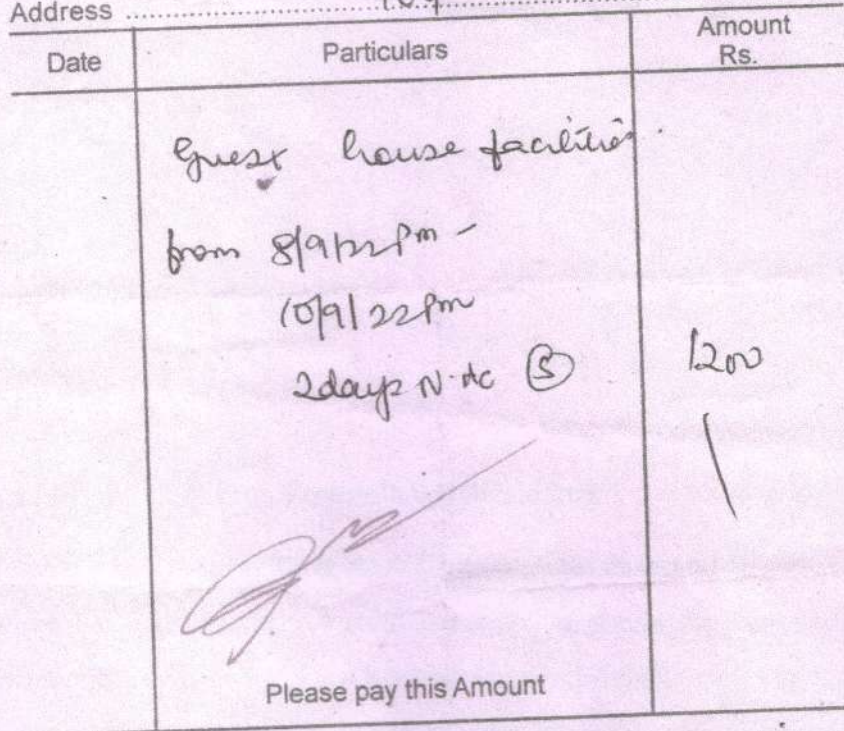 Address
Date Particulars Amount Rs.
Guest house facilities.
from 8/9/22 Pm -
10/9/22 Pm
2days N.Ac (S) 1200
Please pay this Amount